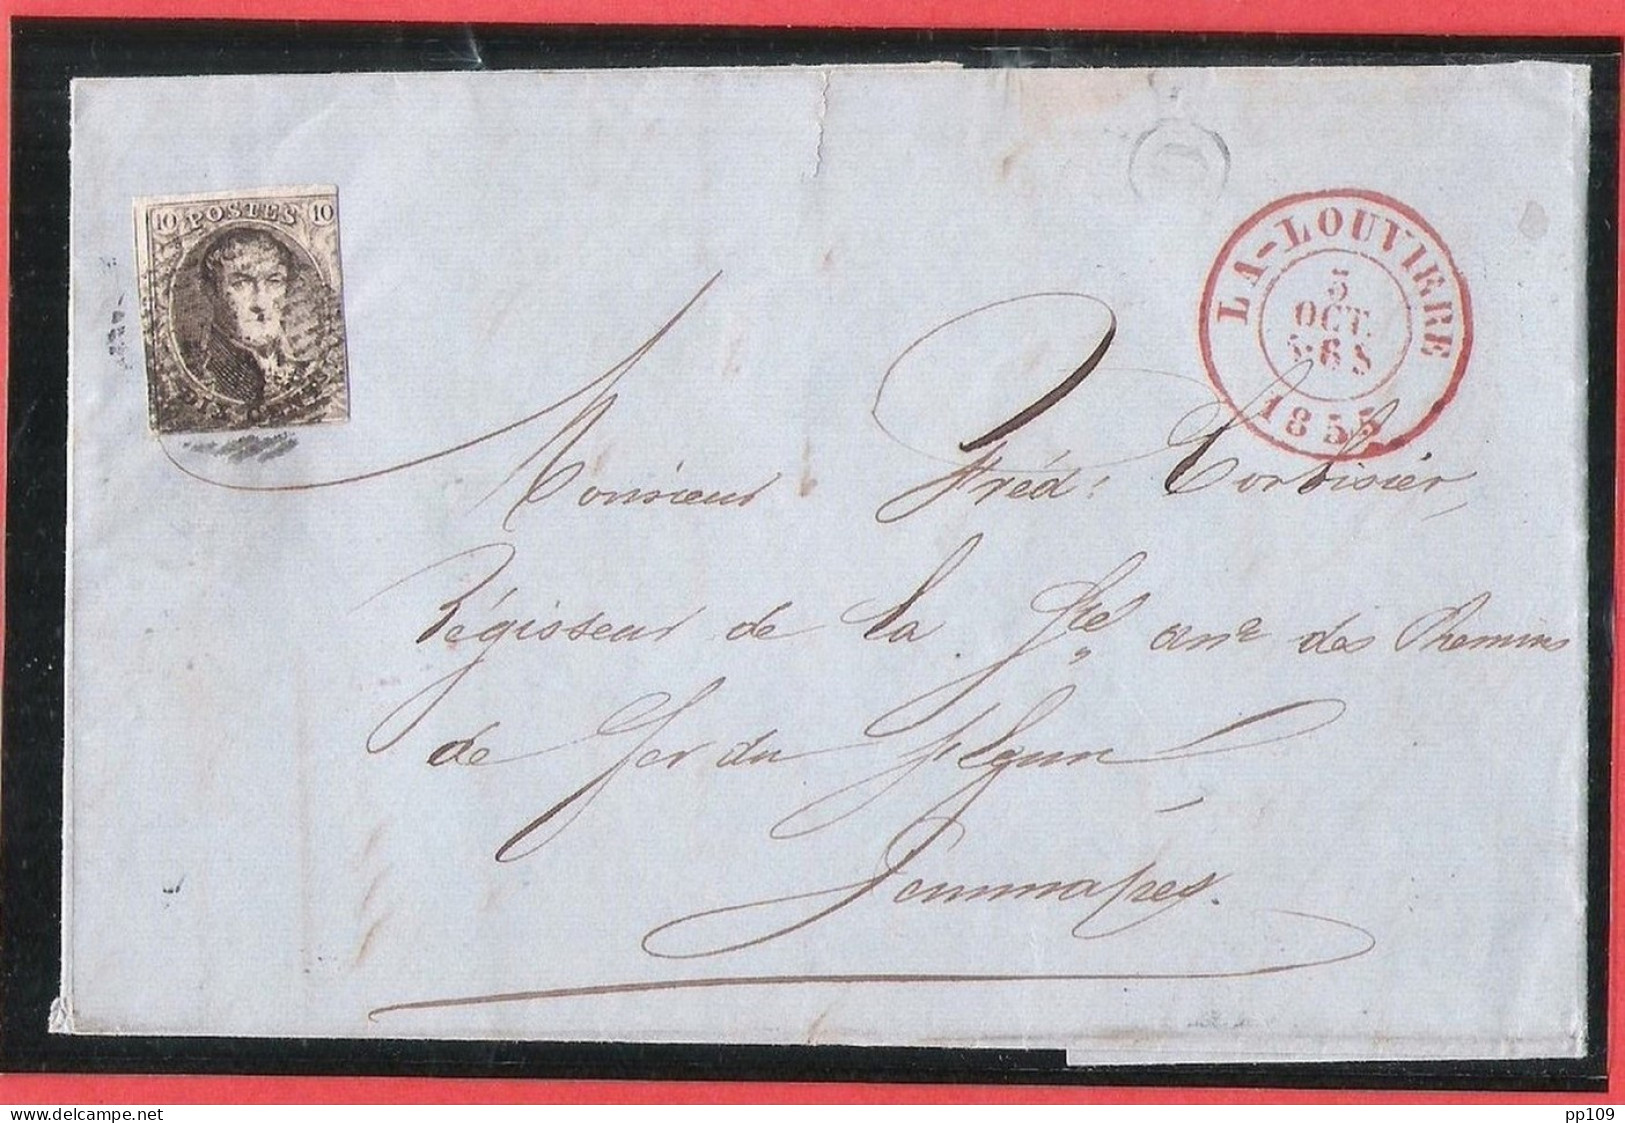 10 POSTES 10
DIX CENTS
LA-LOUVIERE
5
OCT.
1855
Monsieur Fréd: Corbisier,
Régisseur de la Sté anme des Chemins
de fer du flenu
Jemmapes.
www.delcampe.net
pp109